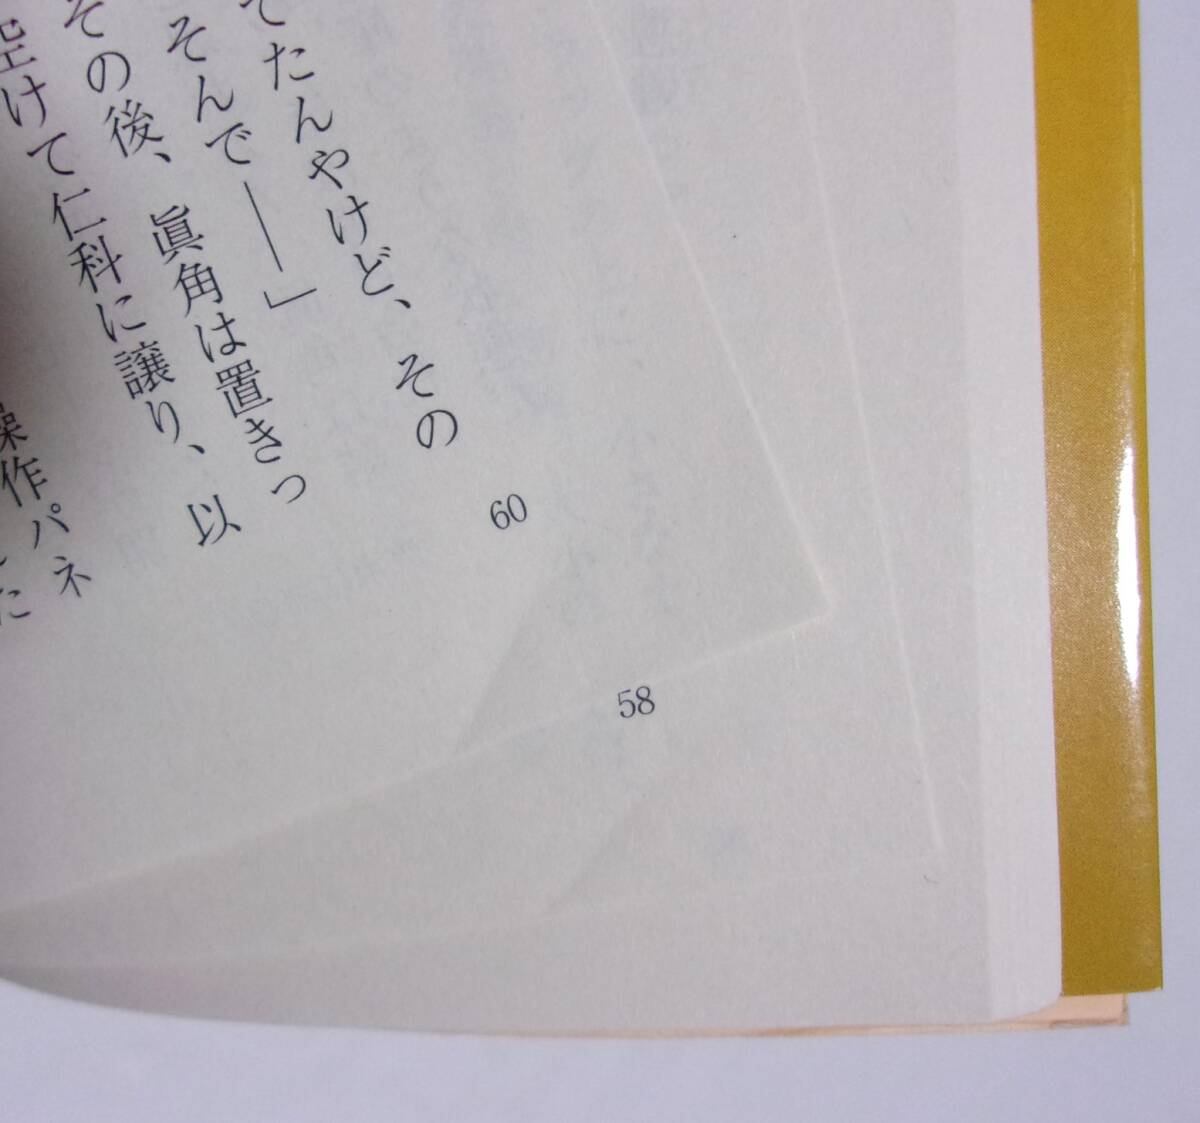 てたんやけど、その
そんで――」
その後、眞角は置きっ
空けて仁科に譲り、以
操作パネ
した
60
58